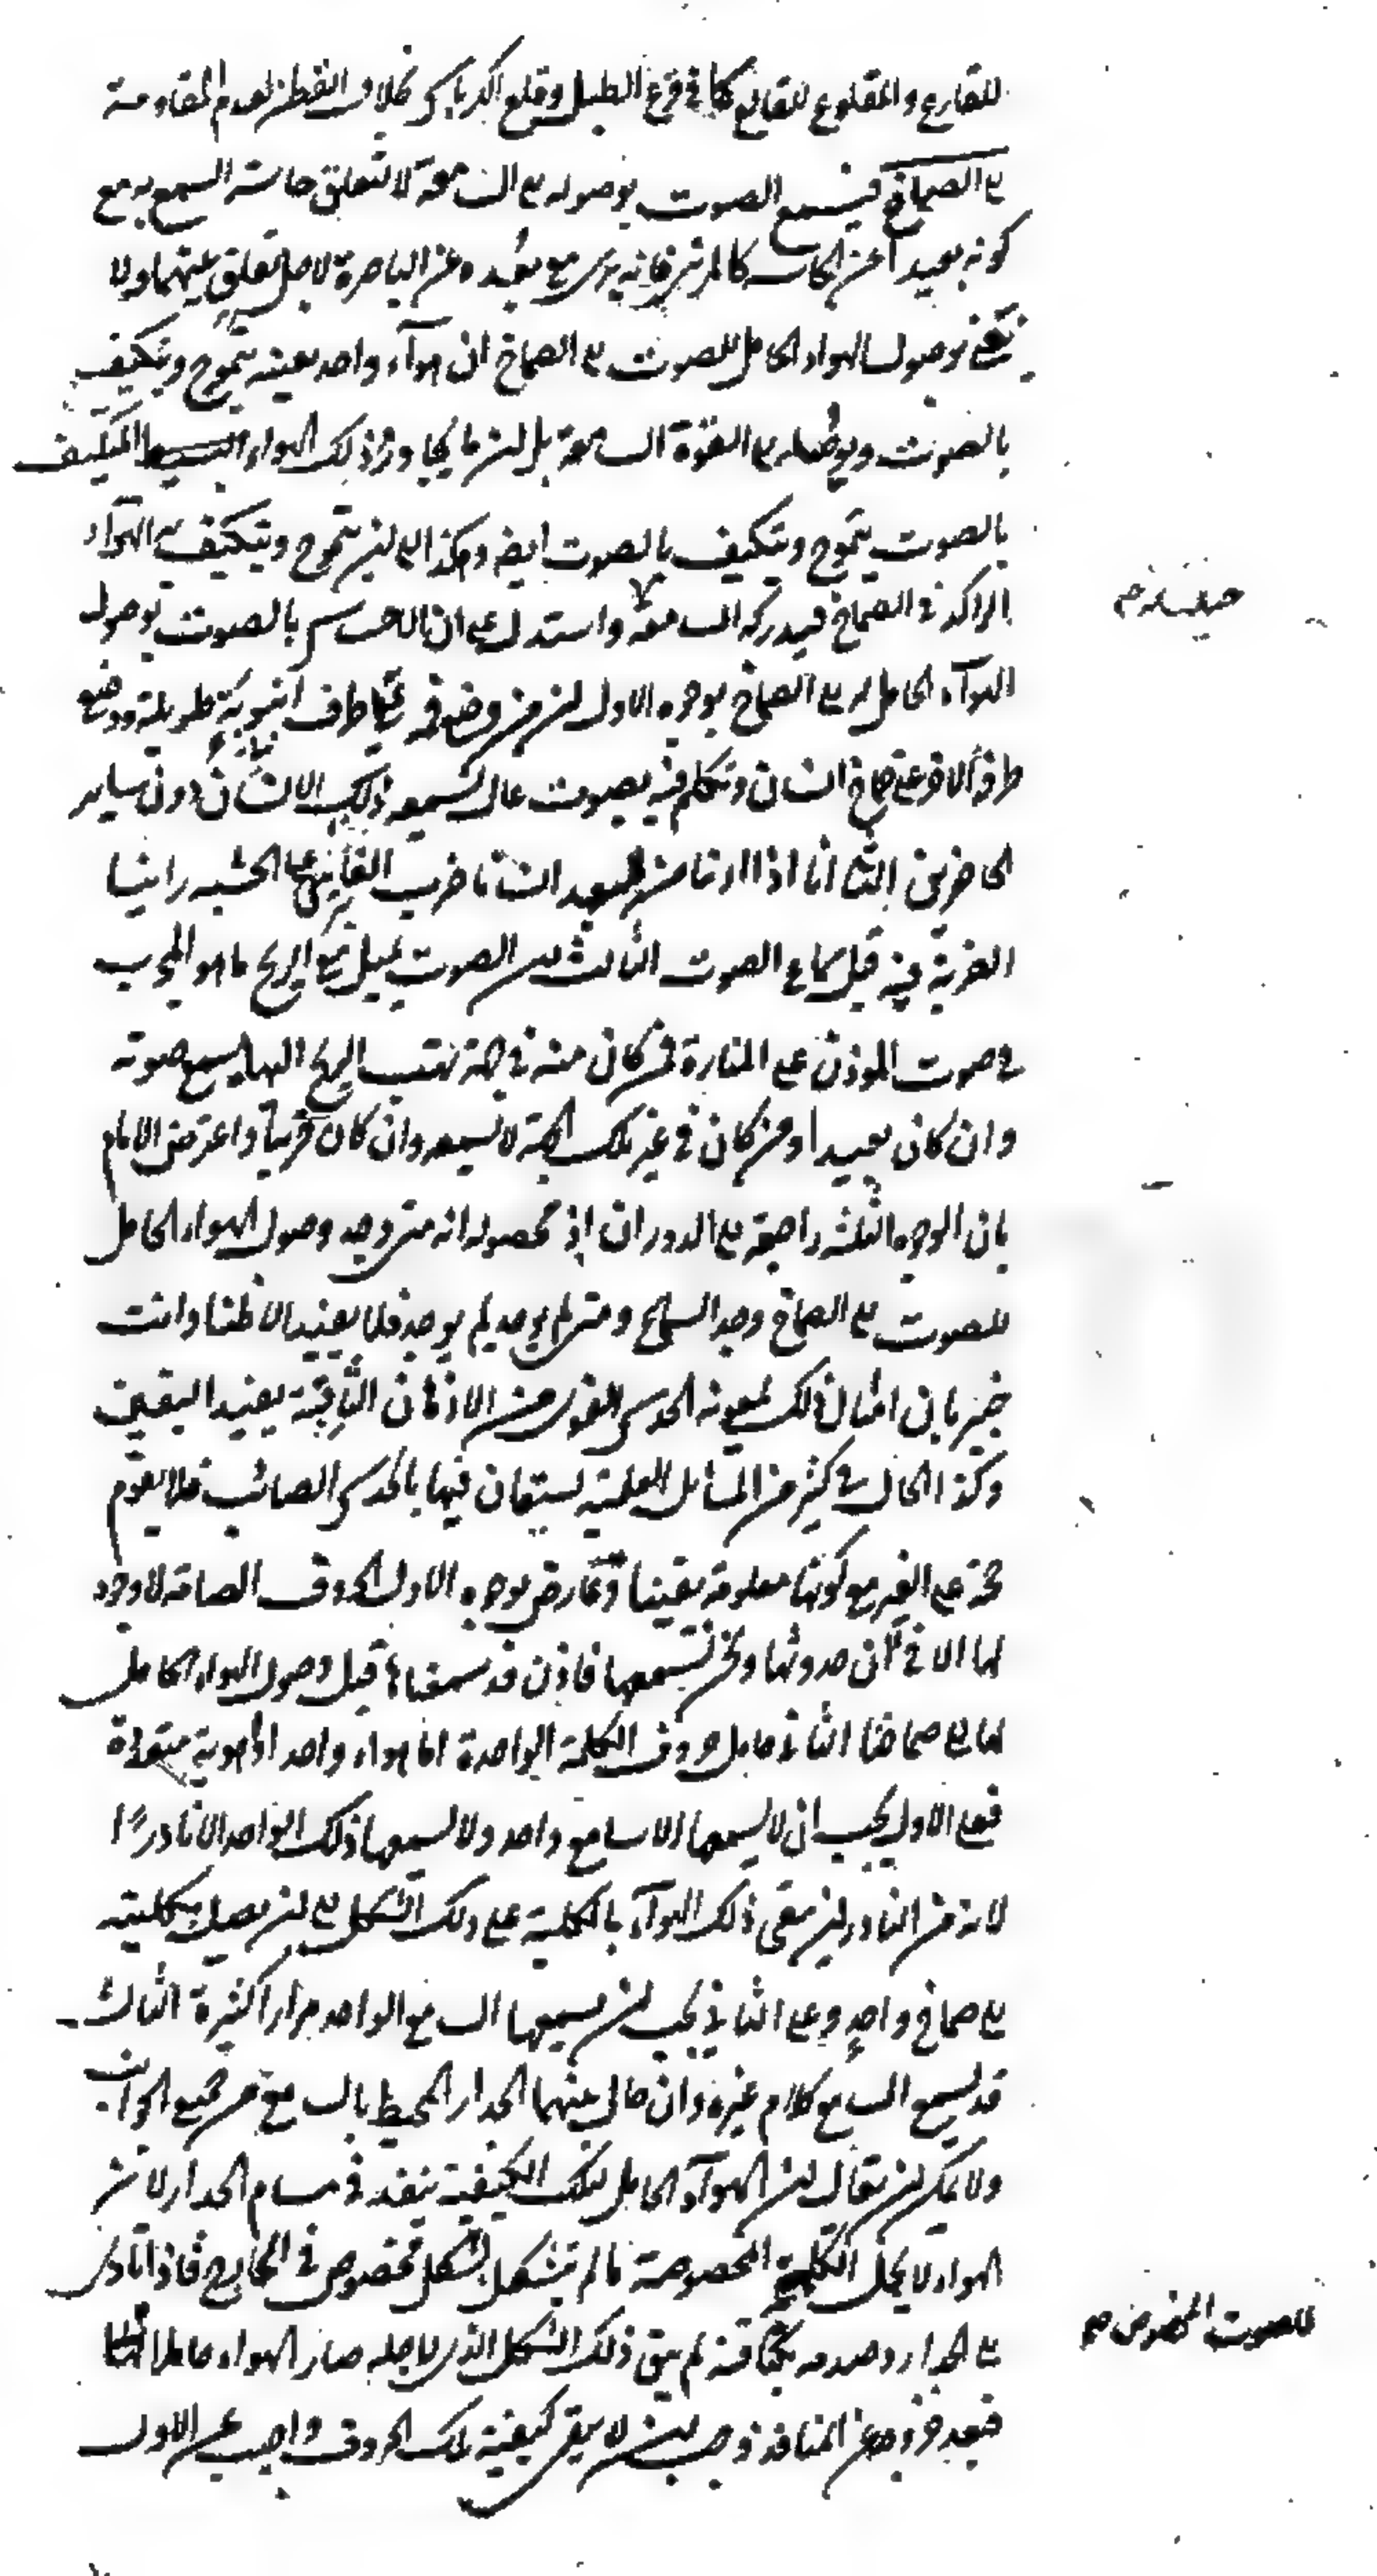 للقارع والمقلوع للقالع كما في قرع الطبل وقلع الكرباس بخلاف القطن لعدم المقاومة
الى الصماخ فيسمع الصوت بوصوله الى السامعة لا لتعلق حاسة السمع به مع
كونه بعيدا عن الحاسة كالمرئي فانه يرى مع بعده عن الباصرة لاجل تعلق بينهما ولا
نعني بوصول الهواء الحامل للصوت الى الصماخ ان هواء واحد بعينه يتموج ويتكيف
بالصوت ويوصله الى القوة السامعة بل ان ما يجاور ذلك الهواء البسيط المتكيف
بالصوت يتموج ويتكيف بالصوت ايضا وهكذا الى ان يتموج ويتكيف به الهواء
الراكد في الصماخ فيدركه السامعة واستدل على ان الاحساس بالصوت بوصول
الهواء الحامل له الى الصماخ بوجوه الاول ان من وضع فمه على طرف انبوبة طويلة ووضع
طرفه الاخر على صماخ انسان وتكلم فيه بصوت عال لسمعه ذلك الانسان دون ساير
الحاضرين الثاني انا اذا راينا من البعيد انسانا ضرب الفاس على الخشبة راينا
الضربة قبل سماع الصوت الثالث ان الصوت يميل مع الريح ما هو المجرب
في صوت المؤذن على المنارة فمن كان منه في جهة تهب الريح اليها يسمع صوته
وان كان بعيدا ومن كان في غير تلك الجهة لا يسمعه وان كان قريبا واعترض الامام
بان الوجوه الثلثة راجعة الى الدوران اذ محصوله انه متى وجد وصول الهواء الحامل
للصوت الى الصماخ وجد السماع ومتى لم يوجد لم يوجد فلا يفيد الا ظنا وانت
خبير بان امثال ذلك بمعونة الحدس القوي من الاذهان الثاقبة يفيد اليقين
وكذا الحال في كثير من المسائل العلمية يستعان فيها بالحدس الصائب فلا تقوم
حجة على الغير مع كونها معلومة يقينا وتعارض بوجوه الاول الحروف الصامتة لا وجود
لها الا في آن حدوثها ونحن نسمعها فاذن قد سمعناها قبل وصول الهواء الحامل
لها الى صماخنا الثاني حامل حروف الكلمة الواحدة اما هواء واحد او اهوية متعددة
فعلى الاول يجب ان لا يسمعها الا سامع واحد ولا يسمعها ذلك الواحد الا نادرا
لانه من النادر ان يبقى ذلك الهواء بالكلية على ذلك الشكل الى ان يصل بكليته
الى صماخ واحد وعلى الثاني يجب ان يسمعها السامع الواحد مرارا كثيرة الثالث
قد يسمع السامع كلام غيره وان حال بينهما الجدار المحيط بالسامع من جميع الجوانب
ولا يمكن ان يقال ان الهواء الحامل لتلك الكيفية ينفذ في مسام الجدار لان
الهواء لا يحمل الكلمة المخصوصة ما لم يتشكل بشكل مخصوص في المخارج فاذا تادى
الى الجدار وصدمه بكثافته لم يبق ذلك الشكل الذي لاجله صار الهواء حاملا
فبعد خروجه عن المنافذ وجب ان لا يبقى كيفية تلك الحروف واجيب عن الاول
للصوت المخصوص صح